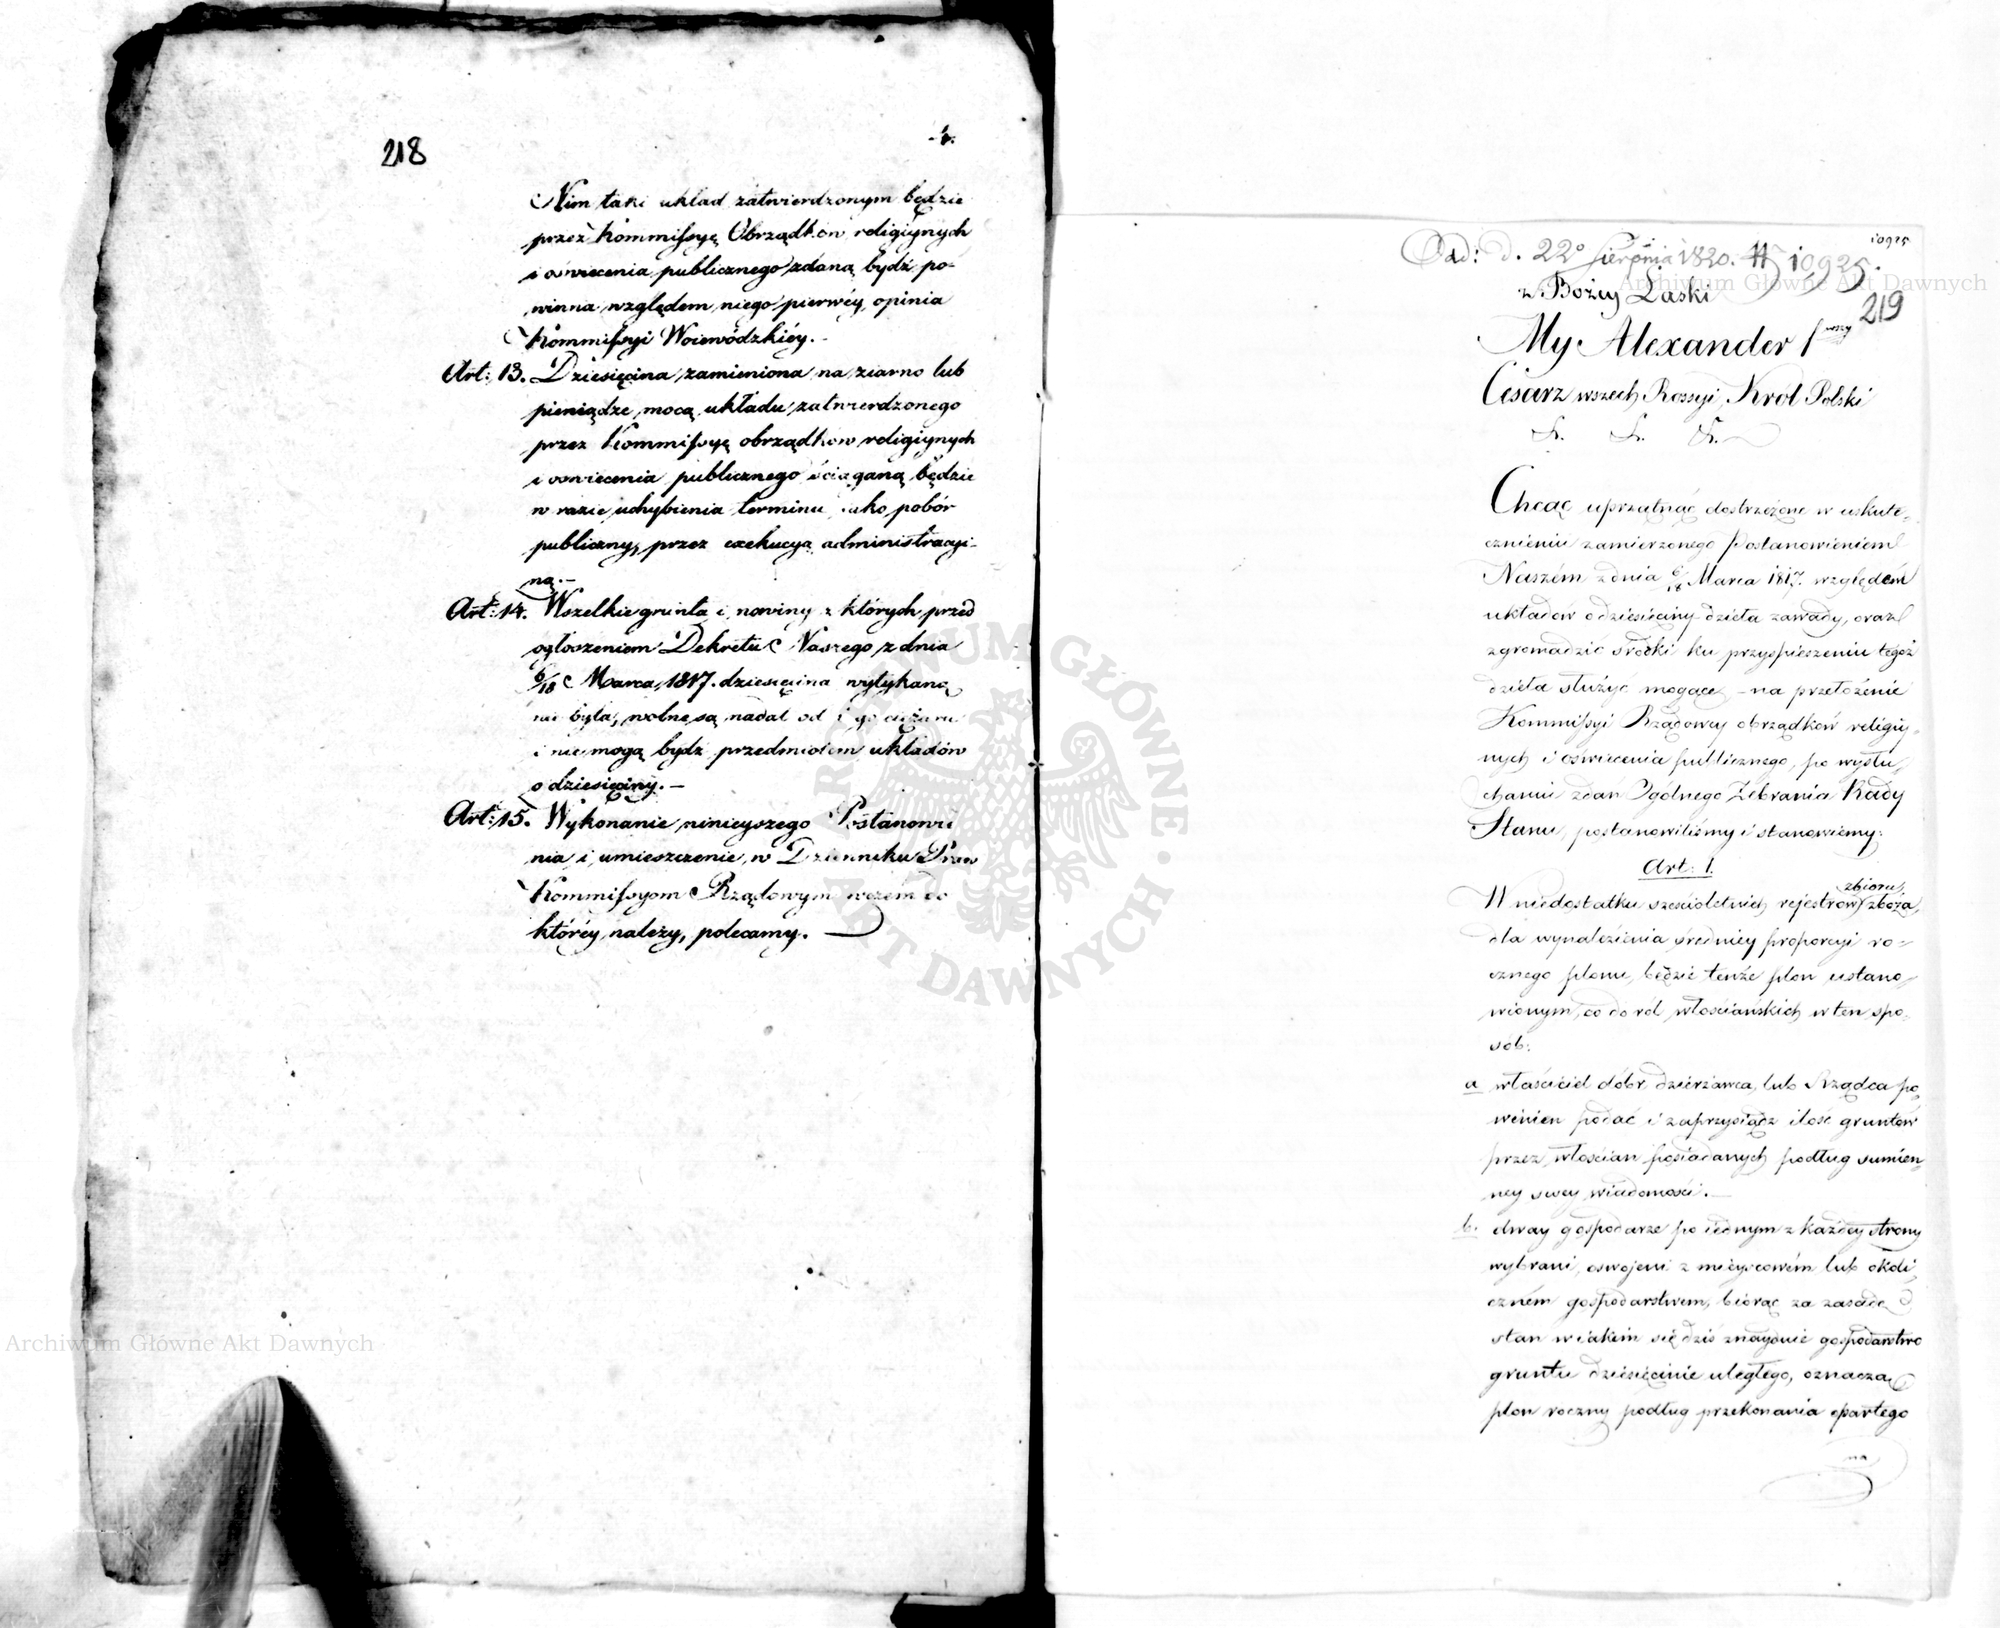 218
Nim taki układ zatwierdzonym będzie
przez Kommissyę Obrządków religiynych
i oświecenia publicznego zdana bydź po-
winna względem niego pierwéy opinia
Kommissyi Woiewódzkiéy.-
Art: 13. Dziesięcina zamieniona na ziarno lub
pieniądze mocą układu zatwierdzonego
przez Kommissyę obrządków religiynych
i oswiecenia publicznego ściąganą będzie
w razie uchybienia terminu jako pobór
publiczny, przez exekucyą administracyi-
ną.-
Art: 14. Wszelkie grunta i nowiny z których przed
ogłoszeniem Dekretu Naszego z dnia
6/18 Marca 1817. dziesięcina wytykaną
nie była, wolne są nadal od tego ciężaru
i nie mogą bydź przedmiotem układów
o dziesięciny.-
Art: 15. Wykonanie ninieyszego Postanowie
nia i umieszczenie w Dzienniku Praw
Kommissyom Rządowym w czém do
któréy należy, polecamy.-
10925
Dad: d. 22° Sierpnia 1820. # 10925.
219
z Bożey Łaski
My Alexander 1wszy
Cesarz wszech Rossyi, Król Polski
&. &. &.
Chcąc uprzątnąć dostrzeżone w uskute-
cznieniu zamierzonego Postanowieniem
Naszém z dnia 6/18 Marca 1817. względem
układów o dziesięciny dzieła zawady, oraz
zgromadzić środki ku przyspieszeniu tegoż
dzieła służyć mogące - na przełożenie
Kommissyi Rządowey obrządków religiy-
nych i oświecenia publicznego, po wysłu-
chaniu zdań Ogólnego Zebrania Rady
Stanu, postanowiliśmy i stanowiemy:
Art: 1.
W niedostatku sześcioletnich rejestrów zbioru zboża,
dla wynalezienia średniey proporcyi ro-
cznego plonu, będzie tenże plon ustano-
wionym, co do ról włościańskich w ten spo-
sób:
a właściciel dóbr, dzierżawca, lub Rządca po-
winien podać i zaprzysiądz ilość gruntów
przez włościan posiadanych podług sumien-
ney swey wiadomości.-
b. dway gospodarze po iednym z każdey strony
wybrani, oswojeni z mieyscowém lub okoli-
czném gospodarstwem, biorąc za zasadę
stan w iakim się dziś znayduie gospodarstwo
gruntu dziesięcinie uległego, oznaczą
plon roczny podług przekonania opartego
na
Archiwum Główne Akt Dawnych
Archiwum Główne Akt Dawnych
ARCHIWUM GŁÓWNE AKT DAWNYCH